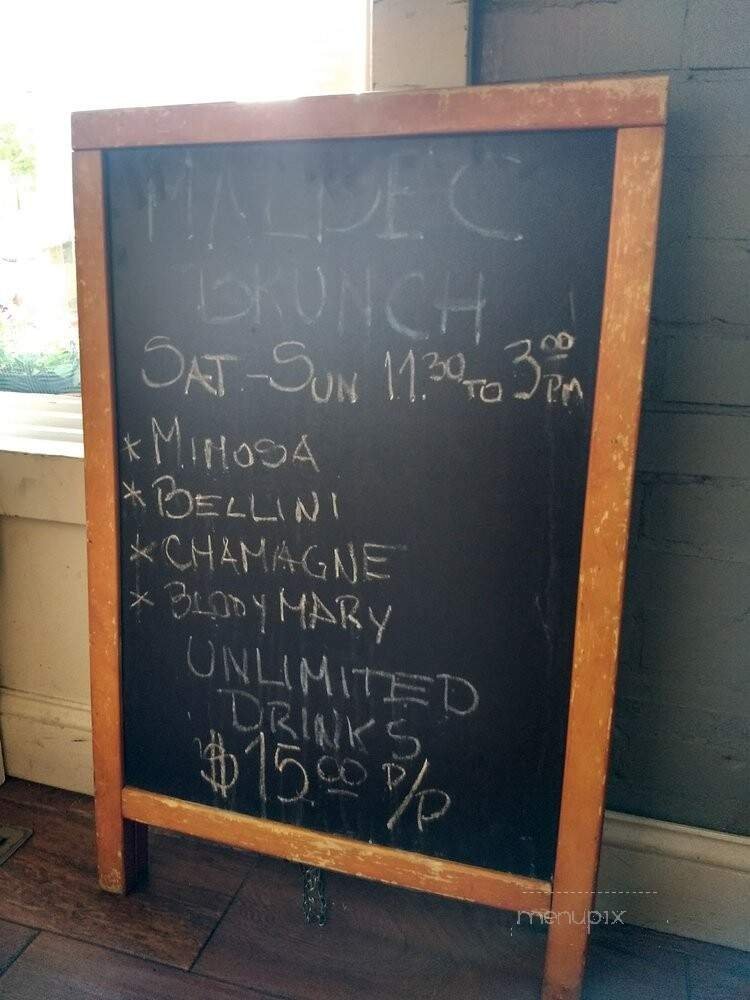 MALBEC
BRUNCH
SAT-SUN 11.30 TO 3 00 PM
* MIMOSA
* BELLINI
* CHAMAGNE
* BLODY MARY
UNLIMITED
DRINKS
$15.00 P/P
menupix